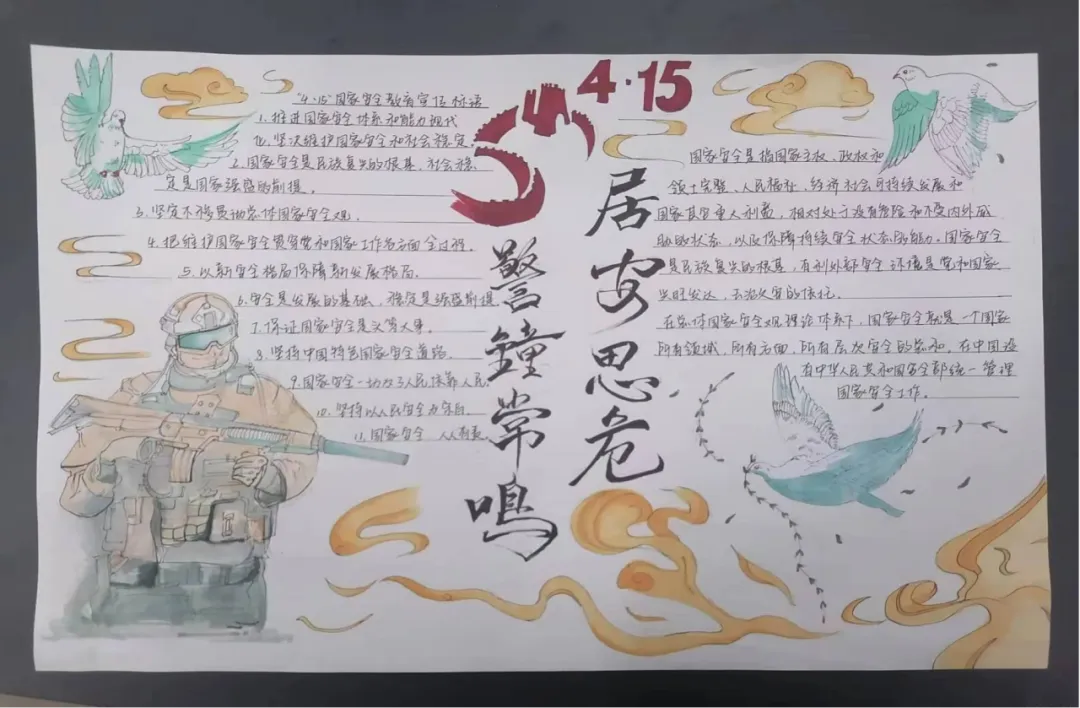 4·15
居安思危
警鐘常鳴
"4·15"国家安全教育宣传标语
1.推进国家安全体系和能力现代
化,坚决维护国家安全和社会稳定。
2.国家安全是民族复兴的根基,社会稳
定是国家强盛的前提。
3.坚定不移贯彻总体国家安全观。
4.把维护国家安全贯穿党和国家工作各方面全过程。
5.以新安全格局保障新发展格局。
6.安全是发展的基础,稳定是强盛前提
7.保证国家安全是头等大事。
8.坚持中国特色国家安全道路。
9.国家安全一切为了人民依靠人民
10.坚持以人民安全为宗旨
11.国家安全 人人有责
国家安全是指国家主权、政权和
领土完整、人民福祉,经济社会可持续发展和
国家其它重大利益,相对处于没有危险和不受内外威
胁的状态,以及保障持续安全状态的能力。国家安全
是民族复兴的根基,有利外部安全环境是党和国家
兴旺发达、长治久安的保证。
在总体国家安全观理论体系下,国家安全就是一个国家
所有领域,所有方面,所有层次安全的总和。在中国设
有中华人民共和国安全部统一管理
国家安全工作。